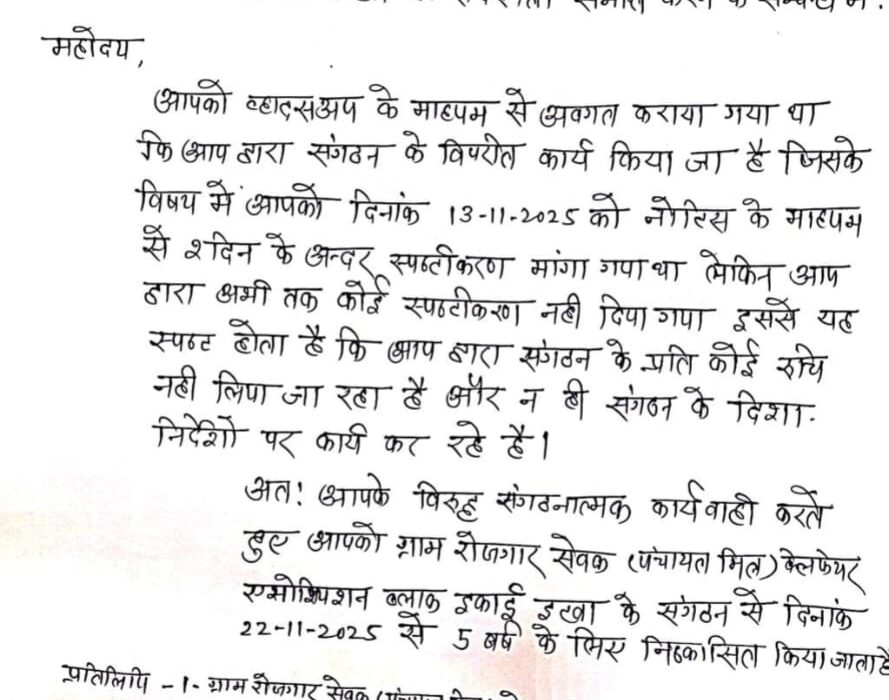 समाप्त करने के सम्बन्ध में.
महोदय,
आपको व्हाटसअप के माध्यम से अवगत कराया गया था
कि आप द्वारा संगठन के विपरीत कार्य किया जा है जिसके
विषय में आपको दिनांक 13-11-2025 को नोटिस के माध्यम
से 2 दिन के अन्दर स्पष्टीकरण मांगा गया था लेकिन आप
द्वारा अभी तक कोई स्पष्टीकरण नही दिया गया इससे यह
स्पष्ट होता है कि आप द्वारा संगठन के प्रति कोई रुचि
नही लिया जा रहा है और न ही संगठन के दिशा-
निर्देशो पर कार्य कर रहे है।
अतः आपके विरुद्ध संगठनात्मक कार्यवाही करते
हुए आपको ग्राम रोजगार सेवक (पंचायत मित्र) वेलफेयर
एसोशियशन ब्लाक इकाई इटवा के संगठन से दिनांक
22-11-2025 से 5 वर्ष के लिए निष्कासित किया जाता है
प्रतिलिपि - 1- ग्राम रोजगार सेवक